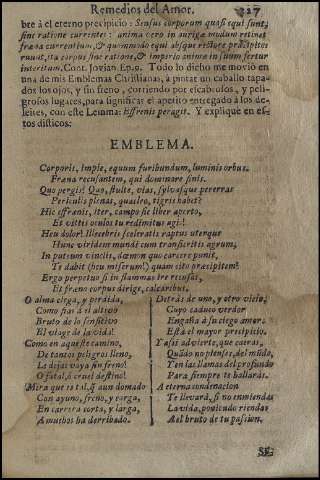 Remedios del Amor. 327
bre à el eterno precipicio: Sensus corporum quasi equi sunt,
sine ratione currentes: anima vero in aurigæ modum retinet
fræna currentium, & quomodo equi absque rectore præcipites
ruunt, ita corpus sine ratione, & imperio animæ in suum fertur
interitum. Cont. Jovian Ep. 9. Todo lo dicho me moviò en
una de mis Emblemas Christianas, à pintar un caballo tapa-
dos los ojos, y sin freno, corriendo por escabrosos, y peli-
grosos lugares, para significar el apetito entregado à los de-
leites, con este Lemma: Effrenis peragit. Y expliquè en es-
tos disticos:
EMBLEMA.
Corporis, Impie, equum furibundum, luminis orbus.
Fræna recusantem, qui dominare sinis.
Quo pergis? Quo, stulte, vias, sylvasque pererras
Periculis plenas,
Hic effrenis, iter, campo sic liber aperto,
Heu dolor! Illecebris sceleratis raptus uterque
Hunc viridem mundi cum transcritis agrum,
In puteum vinclis, dæmon quo carcere punit,
Te dabit (heu miserum!) quam cito præcipitem?
Ergo perpetuo si in flammas ire recusas,
Et fræno corpus dirige, calcaribus.
O alma ciega, y perdida,
Como fias à el altivo
Bruto de lo sensitivo
El viage de la vida!
Como en aqueste camino,
De tantos peligros lleno,
Le dejas vaya sin freno!
O fatal, ò cruel destino!
Mira que es tal, q aun domado
Con ayuno, freno, y carga,
En carrera corta, y larga,
A muchos ha derribado.
Detràs de uno, y otro vicio,
Cuyo caduco verdor
Engaña à su ciego amor:
Està el mayor precipicio.
Y assi advierte, que caeràs,
Quãdo no pienses, del mũdo,
Y en las llamas del profundo
Para siempre te hallaràs.
A eterna condenacion
Te llevarà, si no enmiendas
La vida, poniendo riendas
A el bruto de tu passion.